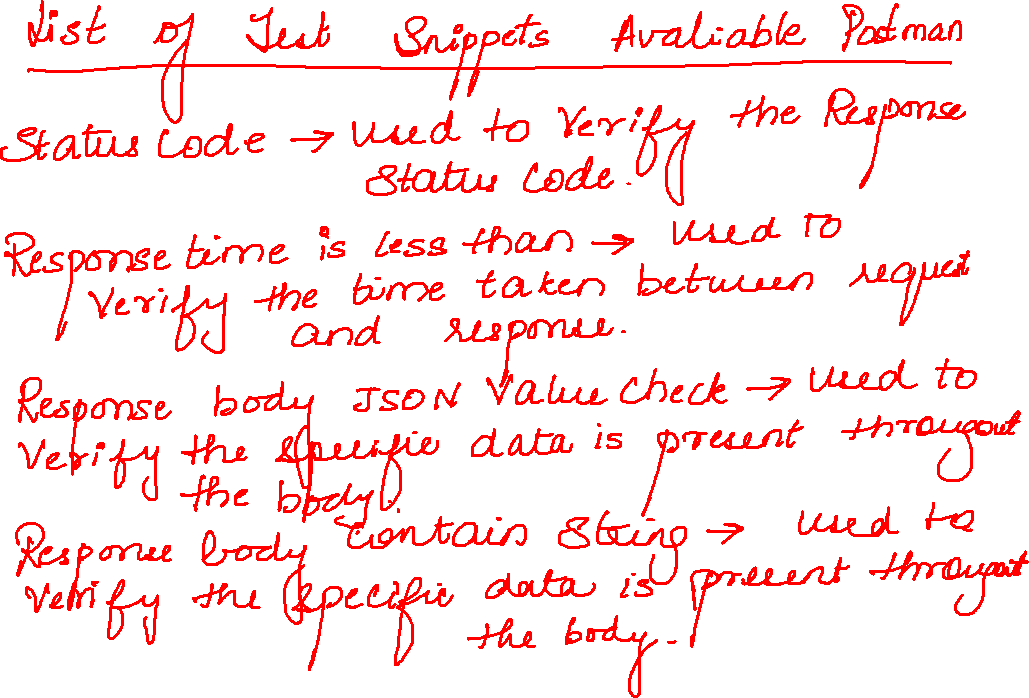 List of Test Snippets Avaliable Postman
Status Code → Used to Verify the Response
Status Code.
Response time is less than → Used to
Verify the time taken between request
and response.
Response body JSON Value Check → Used to
Verify the specific data is present througout
the body.
Response body Contain String → Used to
Verify the specific data is present througout
the body.